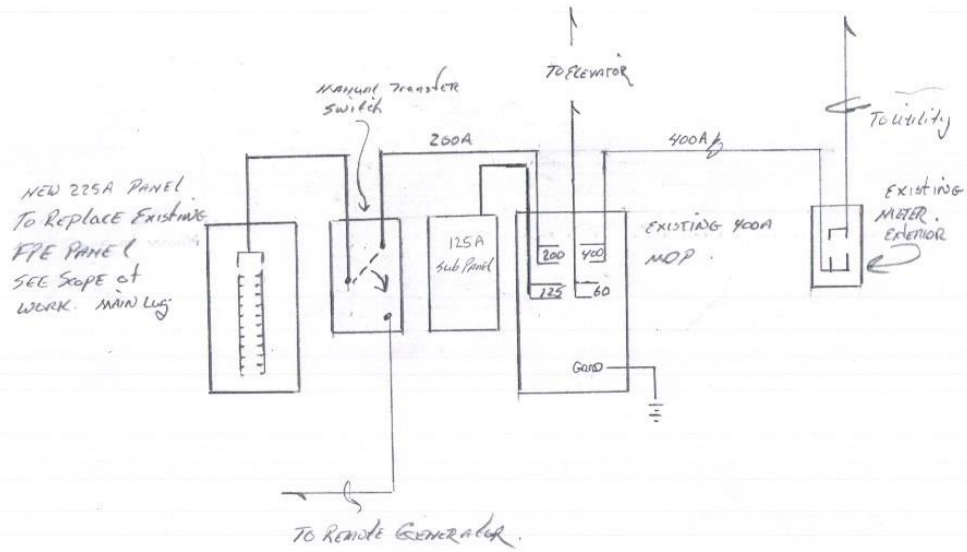 TO ELEVATOR
MANUAL TRANSFER
SWITCH
200A
400A
TO Utility
NEW 225A PANEL
TO REPLACE EXISTING
FPE PANEL
SEE SCOPE of
WORK. MAIN Lug
125A
Sub Panel
200
400
125
60
EXISTING 400A
MDP.
EXISTING
METER.
EXTERIOR
GRND
TO REMOTE GENERATOR.